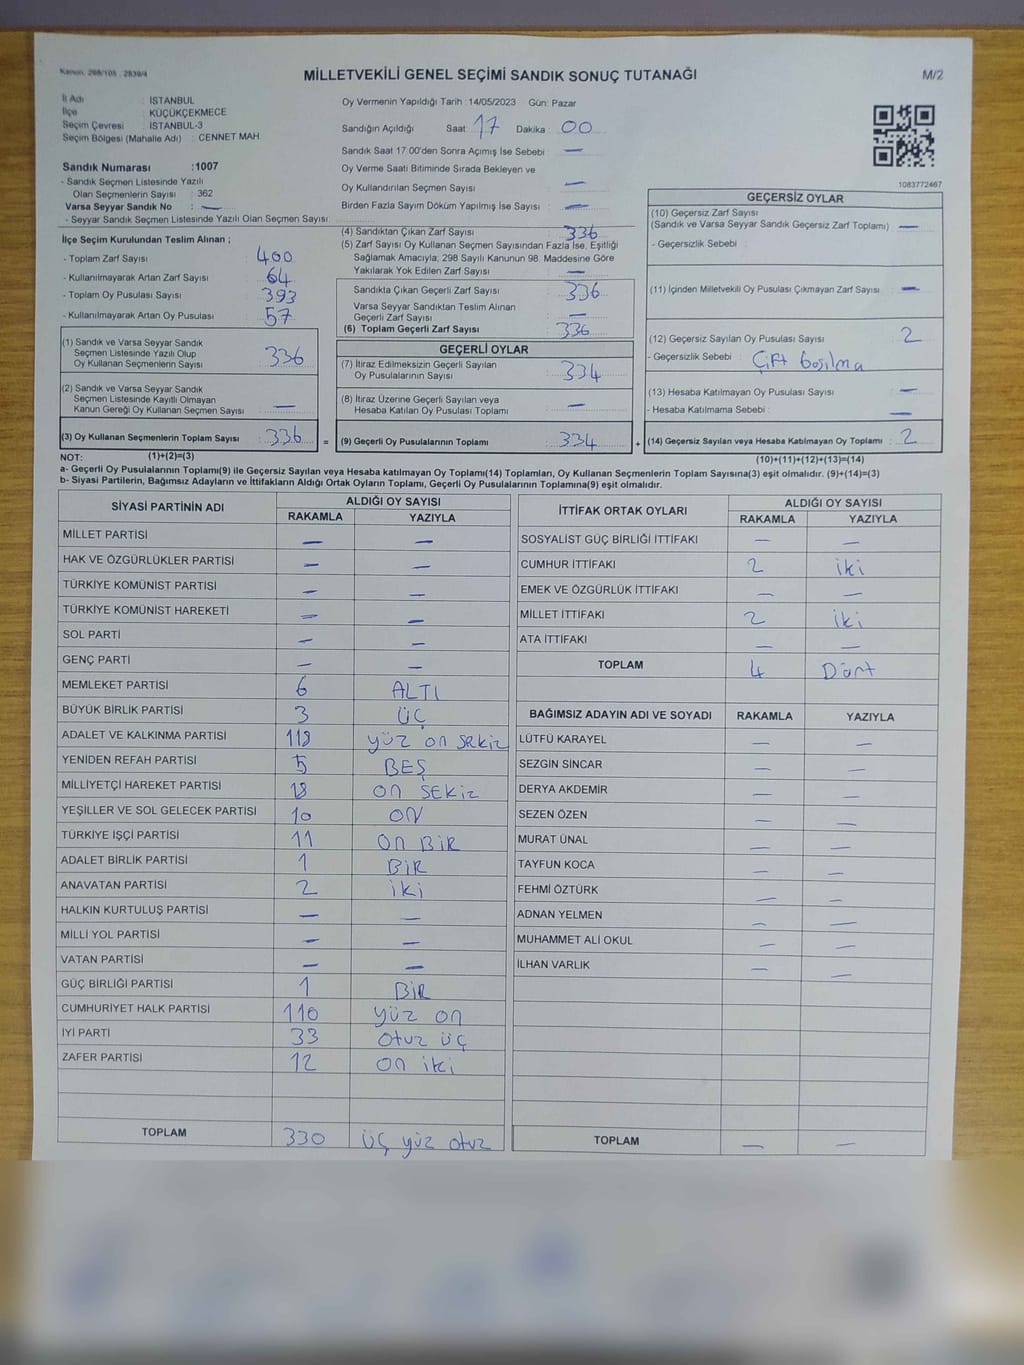 Kanun: 298/105 - 2839/4
MİLLETVEKİLİ GENEL SEÇİMİ SANDIK SONUÇ TUTANAĞI
M/2
İl Adı : İSTANBUL
İlçe : KÜÇÜKÇEKMECE
Seçim Çevresi : İSTANBUL-3
Seçim Bölgesi (Mahalle Adı) : CENNET MAH.
Sandık Numarası :1007
- Sandık Seçmen Listesinde Yazılı
Olan Seçmenlerin Sayısı : 362
Varsa Seyyar Sandık No : —
- Seyyar Sandık Seçmen Listesinde Yazılı Olan Seçmen Sayısı:
Oy Vermenin Yapıldığı Tarih :14/05/2023 Gün: Pazar
Sandığın Açıldığı Saat: 17 Dakika : 00
Sandık Saat 17:00'den Sonra Açımış İse Sebebi : —
Oy Verme Saati Bitiminde Sırada Bekleyen ve
Oy Kullandırılan Seçmen Sayısı : —
Birden Fazla Sayım Döküm Yapılmış İse Sayısı : —
1083772467
İlçe Seçim Kurulundan Teslim Alınan ;
- Toplam Zarf Sayısı : 400
- Kullanılmayarak Artan Zarf Sayısı : 64
- Toplam Oy Pusulası Sayısı : 393
- Kullanılmayarak Artan Oy Pusulası : 57
(1) Sandık ve Varsa Seyyar Sandık
Seçmen Listesinde Yazılı Olup
Oy Kullanan Seçmenlerin Sayısı : 336
(2) Sandık ve Varsa Seyyar Sandık
Seçmen Listesinde Kayıtlı Olmayan
Kanun Gereği Oy Kullanan Seçmen Sayısı : —
(3) Oy Kullanan Seçmenlerin Toplam Sayısı : 336 =
(1)+(2)=(3)
(4) Sandıktan Çıkan Zarf Sayısı : 336
(5) Zarf Sayısı Oy Kullanan Seçmen Sayısından Fazla İse, Eşitliği
Sağlamak Amacıyla; 298 Sayılı Kanunun 98. Maddesine Göre
Yakılarak Yok Edilen Zarf Sayısı : —
Sandıkta Çıkan Geçerli Zarf Sayısı : 336
Varsa Seyyar Sandıktan Teslim Alınan
Geçerli Zarf Sayısı : —
(6) Toplam Geçerli Zarf Sayısı : 336
GEÇERLİ OYLAR
(7) İtiraz Edilmeksizin Geçerli Sayılan
Oy Pusulalarının Sayısı : 334
(8) İtiraz Üzerine Geçerli Sayılan veya
Hesaba Katılan Oy Pusulası Toplamı : —
(9) Geçerli Oy Pusulalarının Toplamı : 334 +
GEÇERSİZ OYLAR
(10) Geçersiz Zarf Sayısı
(Sandık ve Varsa Seyyar Sandık Geçersiz Zarf Toplamı) : —
- Geçersizlik Sebebi :
(11) İçinden Milletvekili Oy Pusulası Çıkmayan Zarf Sayısı : —
(12) Geçersiz Sayılan Oy Pusulası Sayısı : 2
- Geçersizlik Sebebi : Çift basılma
(13) Hesaba Katılmayan Oy Pusulası Sayısı : —
- Hesaba Katılmama Sebebi : —
(14) Geçersiz Sayılan veya Hesaba Katılmayan Oy Toplamı : 2
(10)+(11)+(12)+(13)=(14)
NOT:
a- Geçerli Oy Pusulalarının Toplamı(9) ile Geçersiz Sayılan veya Hesaba katılmayan Oy Toplamı(14) Toplamları, Oy Kullanan Seçmenlerin Toplam Sayısına(3) eşit olmalıdır. (9)+(14)=(3)
b- Siyasi Partilerin, Bağımsız Adayların ve İttifakların Aldığı Ortak Oyların Toplamı, Geçerli Oy Pusulalarının Toplamına(9) eşit olmalıdır.
SİYASİ PARTİNİN ADI ALDIĞI OY SAYISI
RAKAMLA YAZIYLA
MİLLET PARTİSİ — —
HAK VE ÖZGÜRLÜKLER PARTİSİ — —
TÜRKİYE KOMÜNİST PARTİSİ — —
TÜRKİYE KOMÜNİST HAREKETİ — —
SOL PARTİ — —
GENÇ PARTİ — —
MEMLEKET PARTİSİ 6 ALTI
BÜYÜK BİRLİK PARTİSİ 3 ÜÇ
ADALET VE KALKINMA PARTİSİ 118 yüz on sekiz
YENİDEN REFAH PARTİSİ 5 BEŞ
MİLLİYETÇİ HAREKET PARTİSİ 18 on SEKiz
YEŞİLLER VE SOL GELECEK PARTİSİ 10 ON
TÜRKİYE İŞÇİ PARTİSİ 11 on BiR
ADALET BİRLİK PARTİSİ 1 BiR
ANAVATAN PARTİSİ 2 iki
HALKIN KURTULUŞ PARTİSİ — —
MİLLİ YOL PARTİSİ — —
VATAN PARTİSİ — —
GÜÇ BİRLİĞİ PARTİSİ 1 BiR
CUMHURİYET HALK PARTİSİ 110 yüz on
İYİ PARTİ 33 otuz üç
ZAFER PARTİSİ 12 on iki
TOPLAM 330 üç yüz otuz
İTTİFAK ORTAK OYLARI ALDIĞI OY SAYISI
RAKAMLA YAZIYLA
SOSYALİST GÜÇ BİRLİĞİ İTTİFAKI — —
CUMHUR İTTİFAKI 2 iki
EMEK VE ÖZGÜRLÜK İTTİFAKI — —
MİLLET İTTİFAKI 2 iki
ATA İTTİFAKI — —
TOPLAM 4 Dört
BAĞIMSIZ ADAYIN ADI VE SOYADI RAKAMLA YAZIYLA
LÜTFÜ KARAYEL — —
SEZGİN SİNCAR — —
DERYA AKDEMİR — —
SEZEN ÖZEN — —
MURAT ÜNAL — —
TAYFUN KOCA — —
FEHMİ ÖZTÜRK — —
ADNAN YELMEN — —
MUHAMMET ALİ OKUL — —
İLHAN VARLIK — —
TOPLAM — —